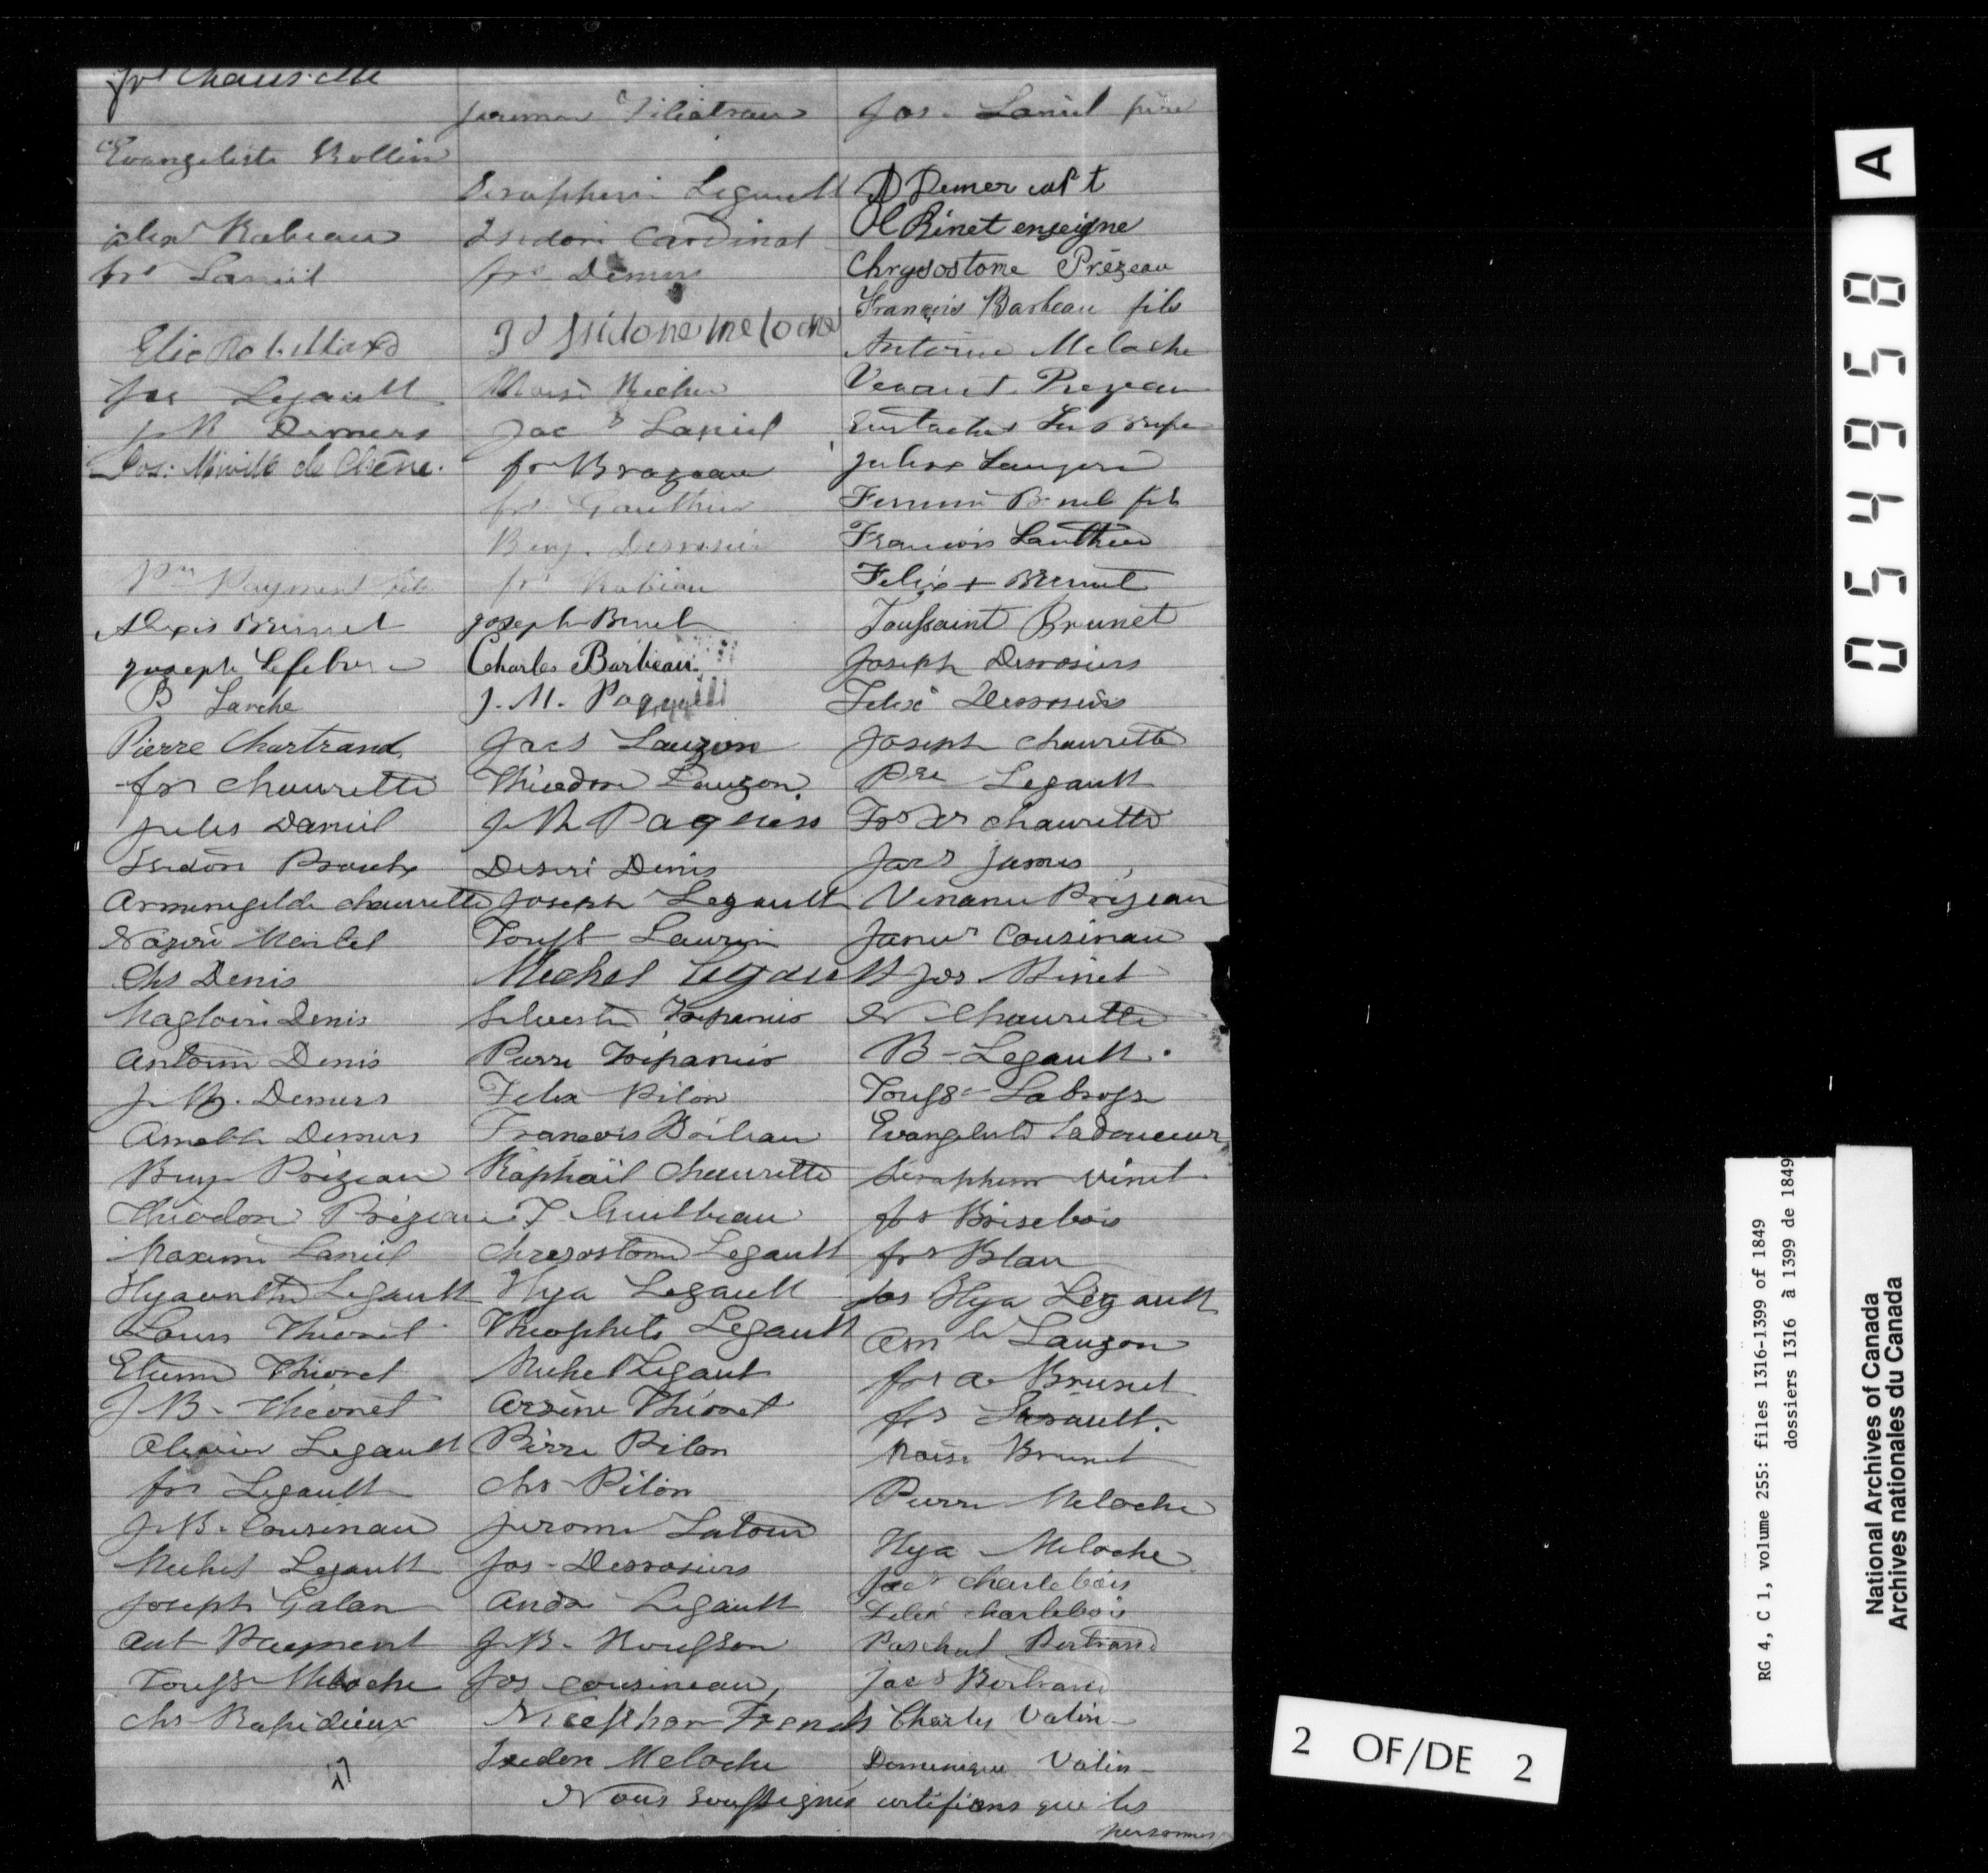 frs Chaurette
Evangeliste Rollin
alex Rabeau
frs Laniel
Elie Robillard
Jos Legault
J B Demers
Jos: Miville de Chêne.
Pre Payment fils
Alexis Brunet
joseph Lefebvre
B Larche
Pierre Chartrand
frs Chaurette
Jules Daniel
Isidore Proulx
Armenegilde chaurette
Nazire Martel
Chs Denis
Magloire Denis
Antoine Denis
J. Bte. Demers
Amable Demers
Benj Prézeau
Théodore Prézeau
Maxime Laniel
Hyacinthe Legault
Louis Théoret
Etienne Théoret
J. B. Théoret
Olivier Legault
frs Legault
J. B. Cousinau
Michel Legault
Joseph Galan
Ant Payment
Touss Meloche
chs Rapidieux
Filiatrau
Seraphin Legault
Isidore Cardinal
frs Demers
Isidone meloche
Moise Richer
Jacs Laniel
frs Brazeau
frs Gauthier
Benj. Desrosier
frs Rabeau
joseph Brunet
Charles Barbeau
J. M. Paquin
Jacs Lauzon
Théodore Lauzon
J. B. Paquin
Désiré Denis
Joseph Legault
Tousst Laurin
Michel Legault
Silvestre Trépanier
Pierre Trépanier
Felix Pilon
François Boileau
Raphaïl Chaurette
J Guilbeau
Chrysostome Legault
Hya Legault
Théophile Legault
Michel Legault
Arsène Théoret
Pierre Pilon
chs Pilon
Jerome Latour
Jos. Desrosiers
André Legault
J. B.
Jos Cousineau
French
Isidore Meloche
Jos. Laniel père
D Demer capt
Binet enseigne
Chrysostome Prézeau
François Barbeau fils
Antoine Meloche
Venant Prezeau
Eustache
Julien
Brunet fils
Francois Gauthier
Felix + Brunet
Toussaint Brunet
Joseph Desrosiers
Felix Desrosiers
Joseph Chaurette
Pre Legault
Frs Xr Chaurette
Jacs James
Venance Prézeau
Janvr Cousinau
Jos Binet
N Chaurette
B. Legault.
Touss. Labrosse
Evangeliste Ladouceur
Seraphin Vinet
frs Brisebois
frs Blau
Jos Hya Légault
Amble Lauzon
frs A. Brunet
frs Legault.
Moise Brunet
Pierre Meloche
Hya Meloche
Jacs Charlebois
Felix Charlebois
Paschal Bertrand
Jacs Bertrand
Charles Valin
Dominique Valin
Nous soussignés certifions que les
personnes
A
054958
2 OF/DE 2
RG 4, C 1, volume 255: files 1316-1399 of 1849
dossiers 1316 à 1399 de 1849
National Archives of Canada
Archives nationales du Canada